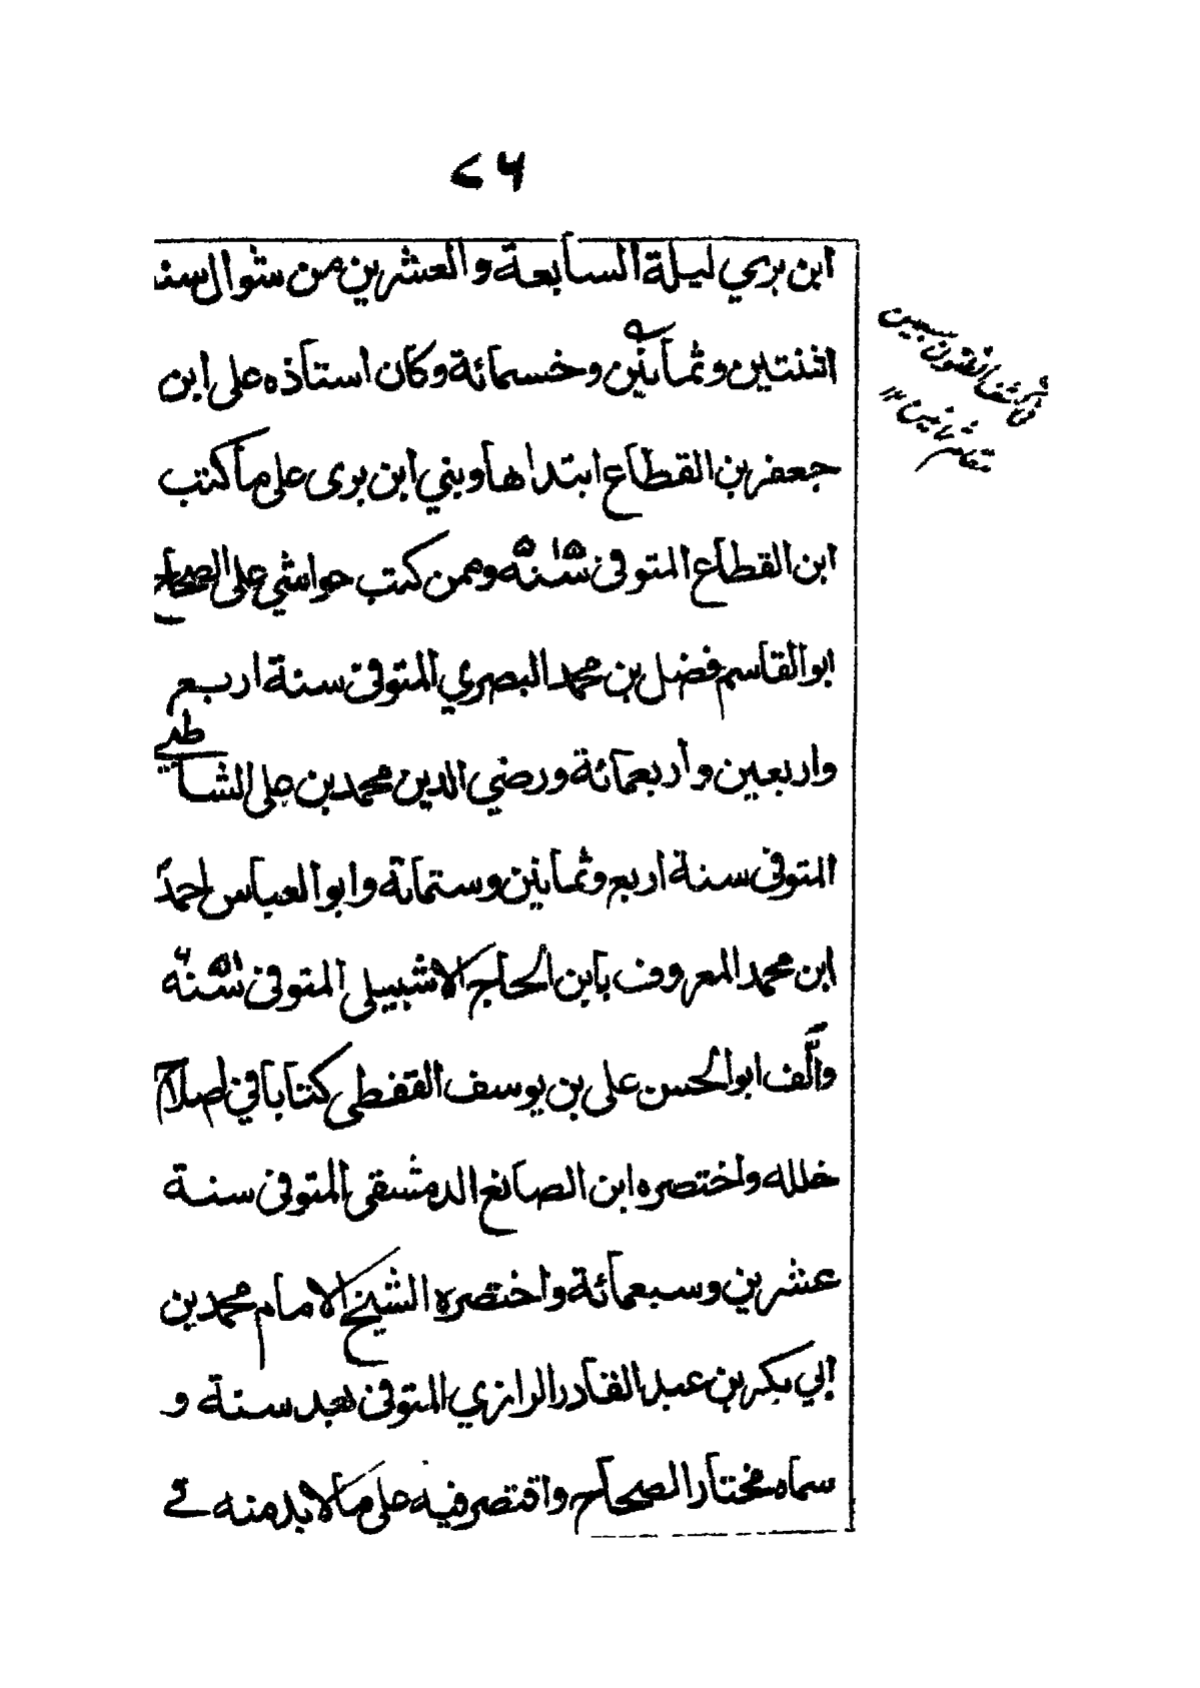 ٢٦
ابن بري ليلة السابعة والعشرين من شوال سنة
اثنتين وثمانين وخسمائة وكان استاذه على ابن
جعفر بن القطاع ابتدا لها وبني ابن برى على ما كتب
ابن القطاع المتوفى سنة ٥١٥ وممن كتب حواشي على الصحاح
ابو القاسم فضل بن محمد البصري المتوفى سنة اربع
واربعين وأربعمائة ورضي الدين محمد بن على الشاطبي
المتوفى سنة اربع وثمانين وستمائة وابو العباس احمد
ابن محمد المعروف بابن الحاج الاشبيلى المتوفى سنة ٦٥١
وألّف ابو الحسن على بن يوسف القفطى كتابا في اصلاح
خلله واختصره ابن الصائغ الدمشقى المتوفى سنة
عشرين وسبعمائة واختصره الشيخ الامام محمد بن
ابي بكر بن عبد القادر الرازي المتوفى بعد سنة و
سماه مختار الصحاح واقتصر فيه على ما لابد منه في
في كشف الظنون سبعين
مقام ثمانين ١٢